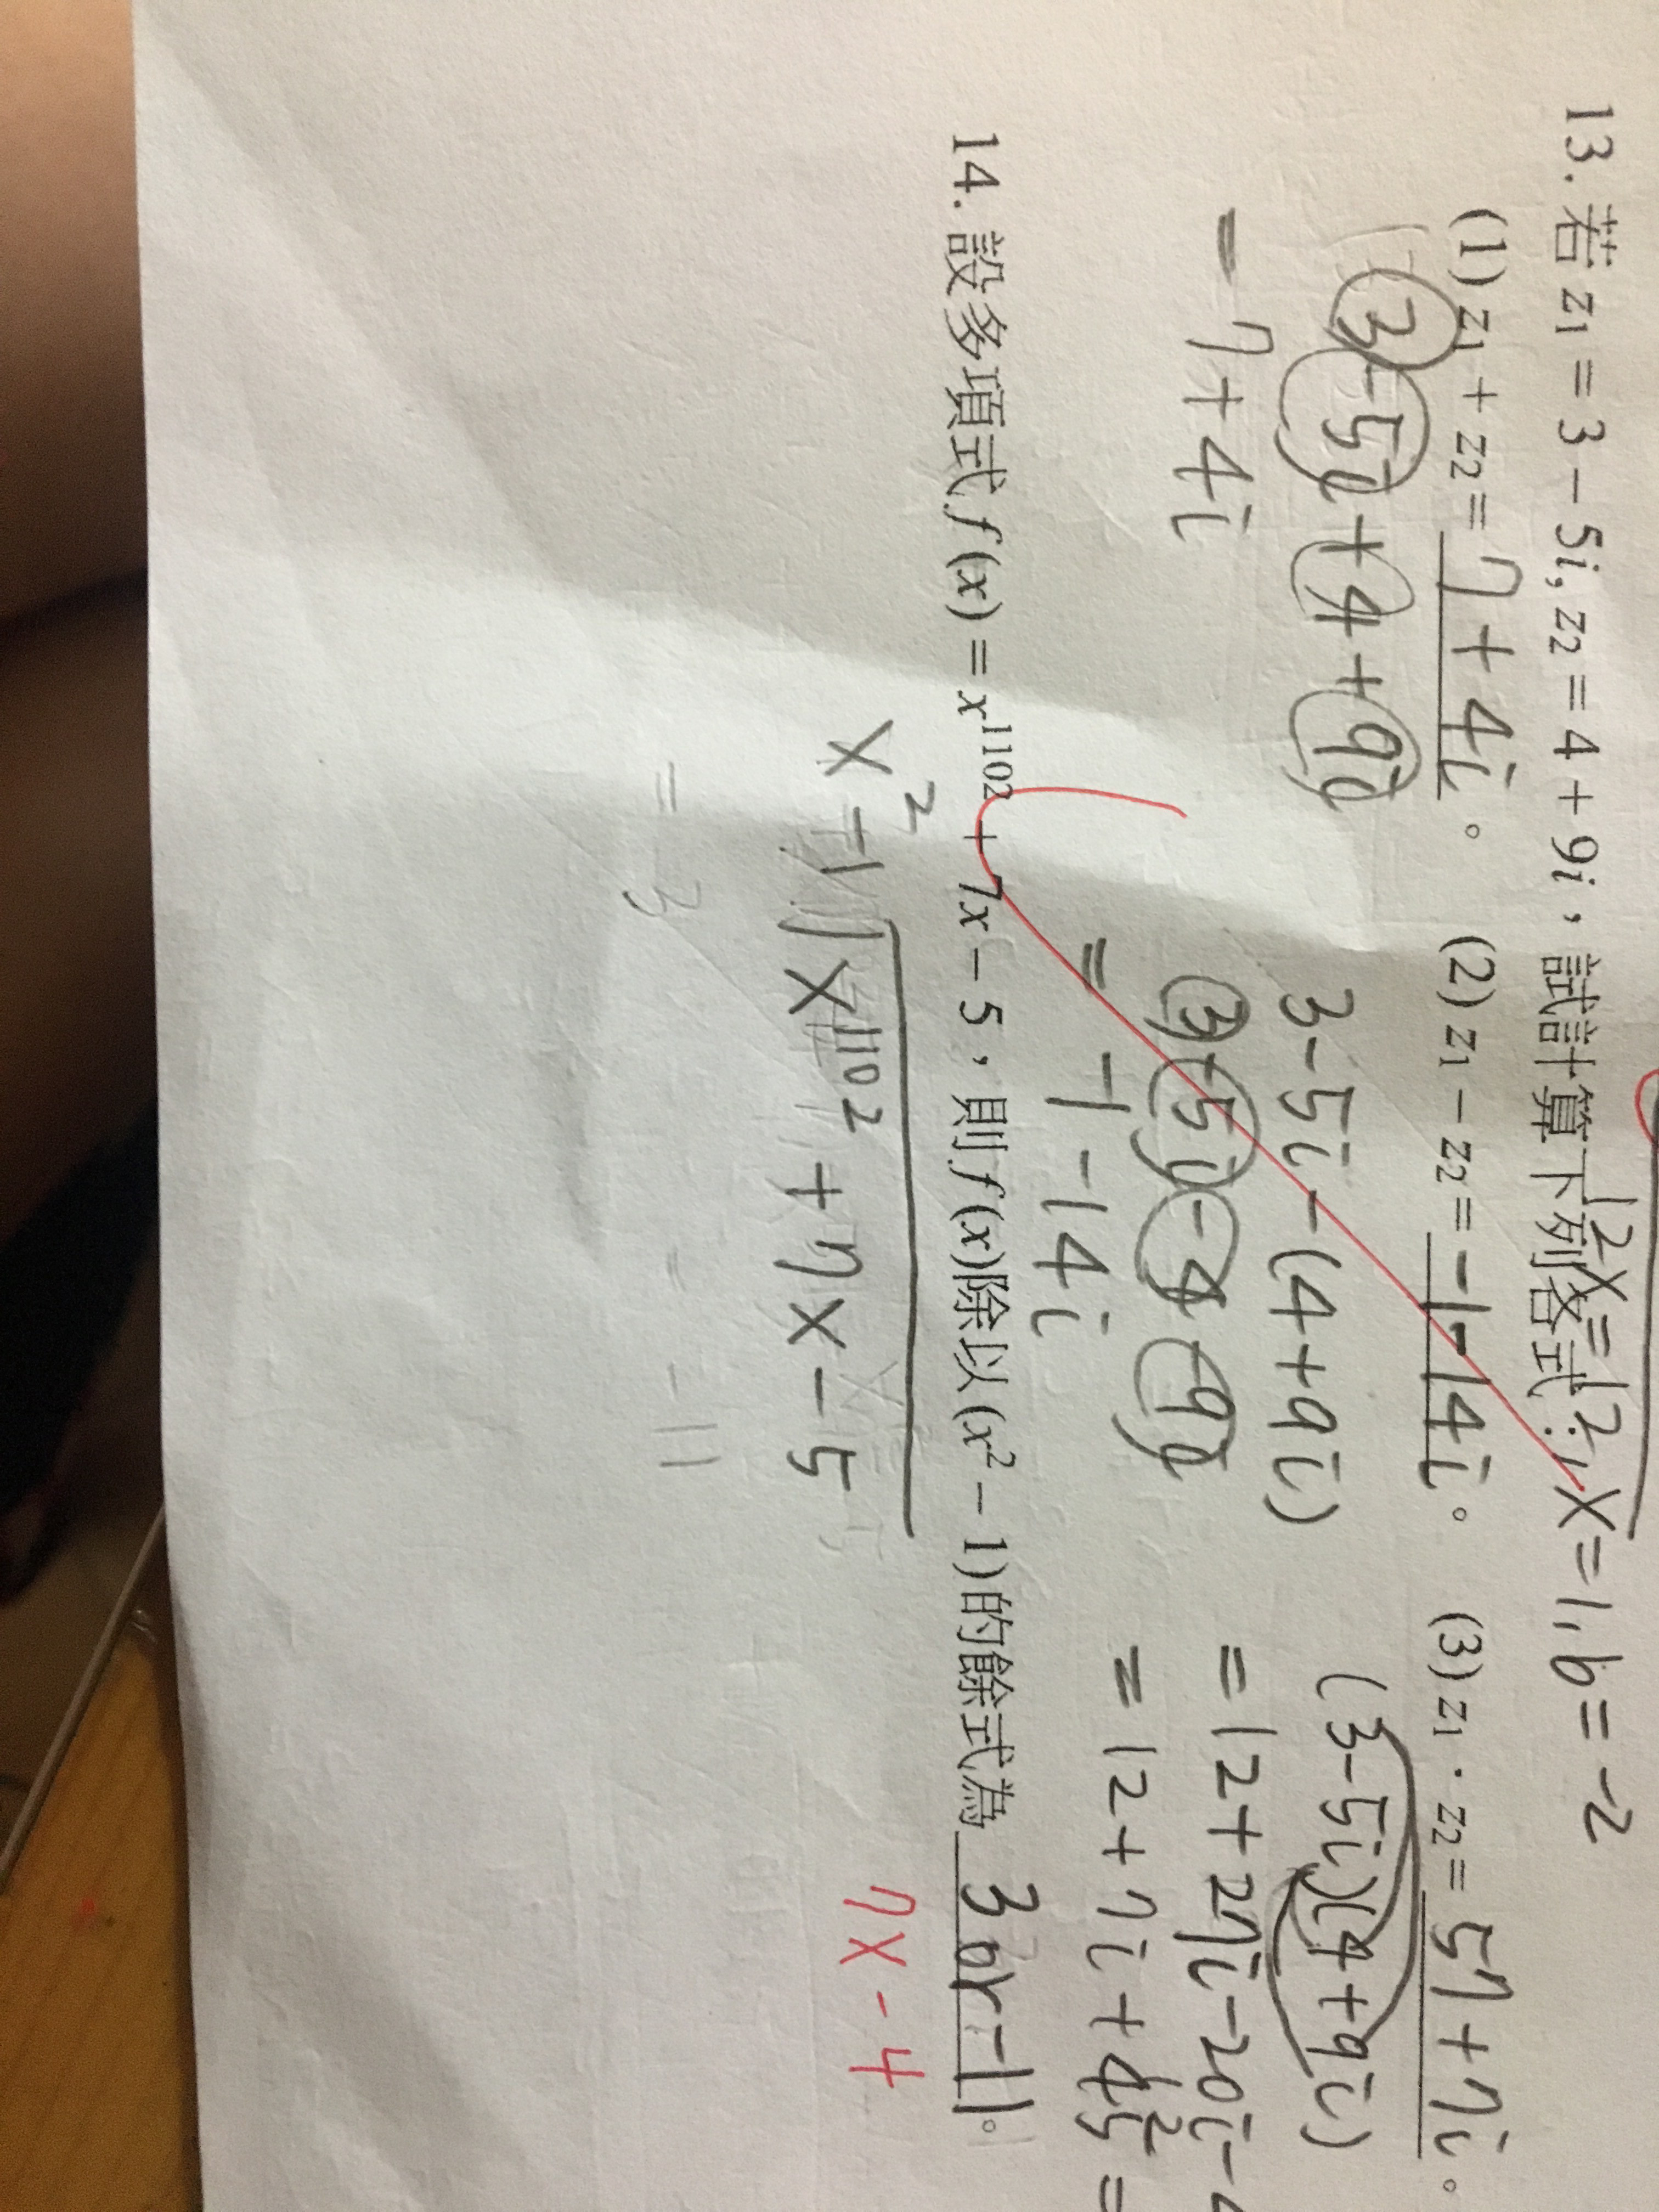 12x=12, x=1, b=-2
13. 若 z₁ = 3 − 5i, z₂ = 4 + 9i，試計算下列各式：
(1) z₁ + z₂ = 7+4i 。 (2) z₁ − z₂ = -1-14i 。 (3) z₁ · z₂ = 57+7i 。
3-5i+4+9i
= 7+4i
3-5i-(4+9i)
3-5i-4-9i
= -1-14i
(3-5i)(4+9i)
=12+27i-20i-4
=12+7i+45=
14. 設多項式 f(x) = x¹¹⁰² + 7x − 5，則 f(x)除以(x² − 1)的餘式為 3 or -11。
7x-4
x²-1 x¹¹⁰²+7x-5
= 3
= -11